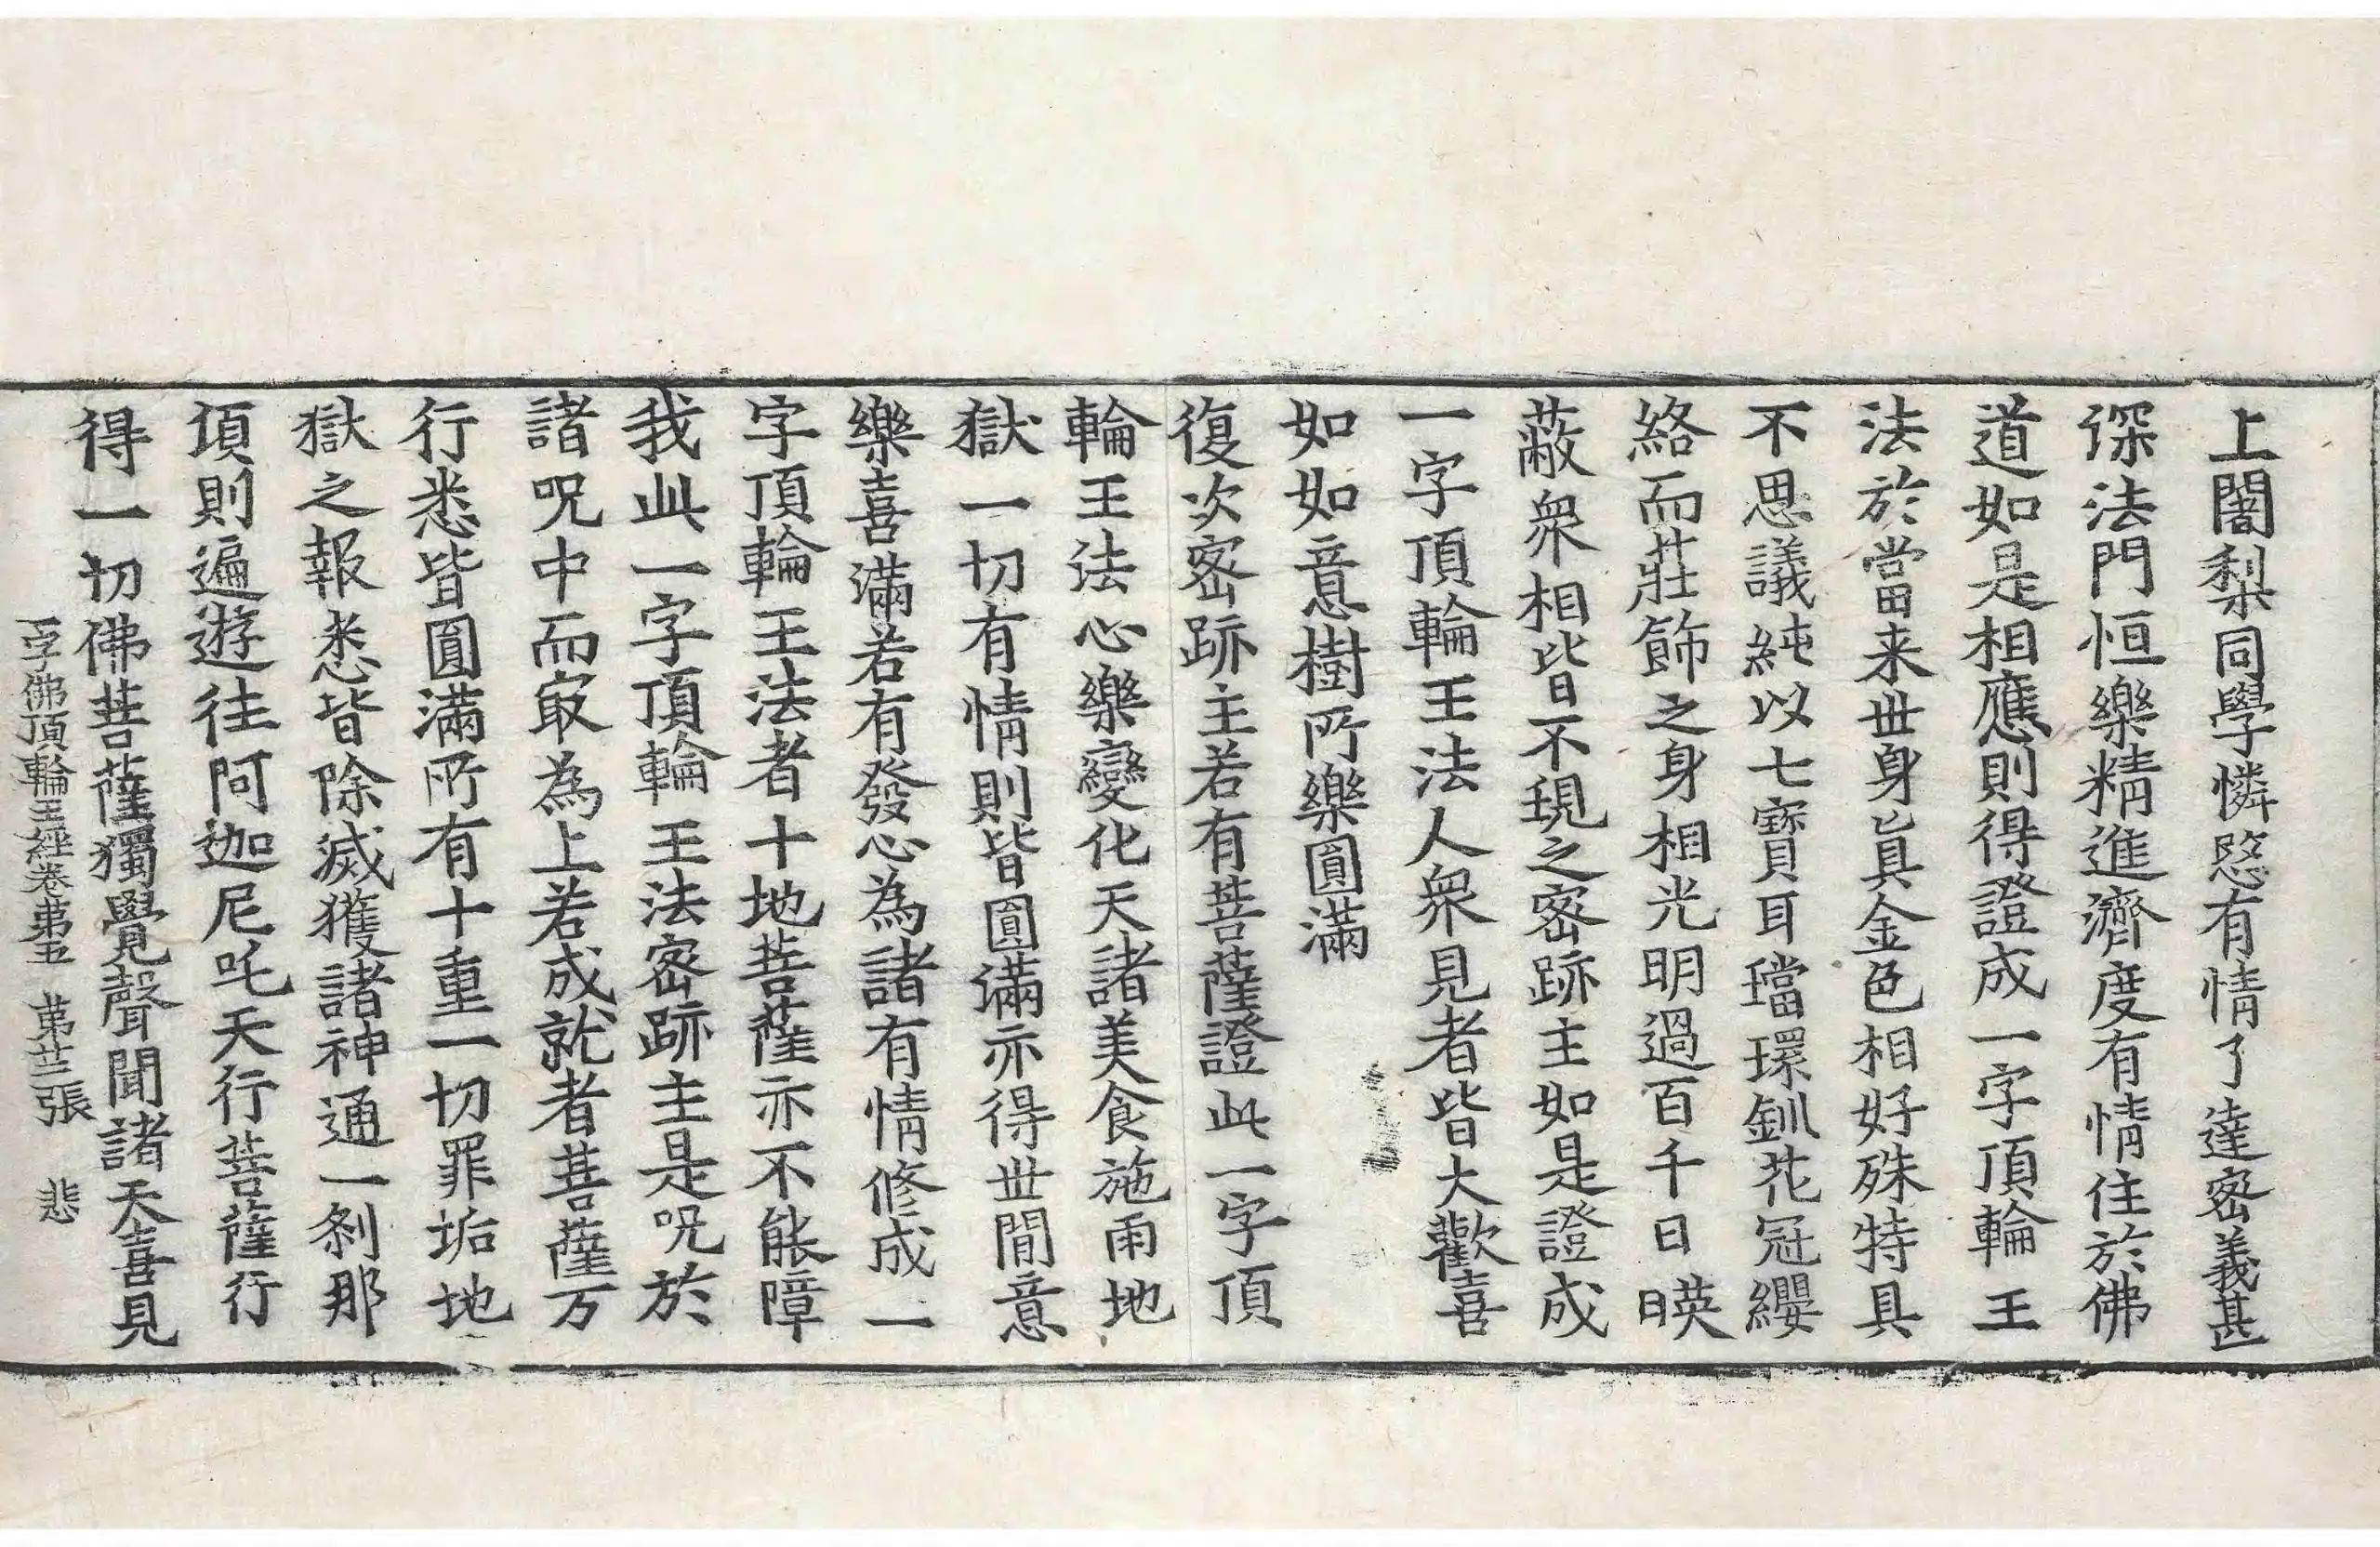 上闍梨同學憐愍有情了達密義甚
深法門恒樂精進濟度有情住於佛
道如是相應則得證成一字頂輪王
法於當来世身真金色相好殊特具
不思議純以七寶耳璫環釧花冠纓
絡而莊飾之身相光明過百千日暎
蔽衆相皆不現之密跡主如是證成
一字頂輪王法人衆見者皆大歡喜
如如意樹所樂圓滿
復次密跡主若有菩薩證此一字頂
輪王法心樂變化天諸美食施雨地
獄一切有情則皆圓滿亦得世間意
樂喜滿若有發心為諸有情修成一
字頂輪王法者十地菩薩亦不能障
我此一字頂輪王法密跡主是呪於
諸呪中而㝡為上若成就者菩薩万
行悉皆圓滿所有十重一切罪垢地
獄之報悉皆除滅獲諸神通一剎那
頃則遍遊往阿迦尼吒天行菩薩行
得一切佛菩薩獨覺聲聞諸天喜見
一字佛頂輪王經卷第五　第廿三張　悲